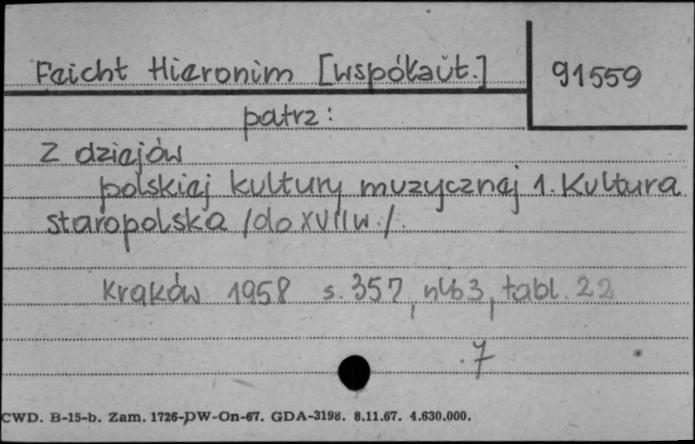 Feicht Hieronim [współaut.] 91559
patrz:
Z dziejów
polskiej kultury muzycznej 1. Kultura
staropolska /do XVIII w./.
Kraków 1958 s. 357, nlb 3, tabl. 22
7
CWD. B-15-b. Zam. 1726-DW-On-67. GDA-3198. 8.11.67. 4.630.000.